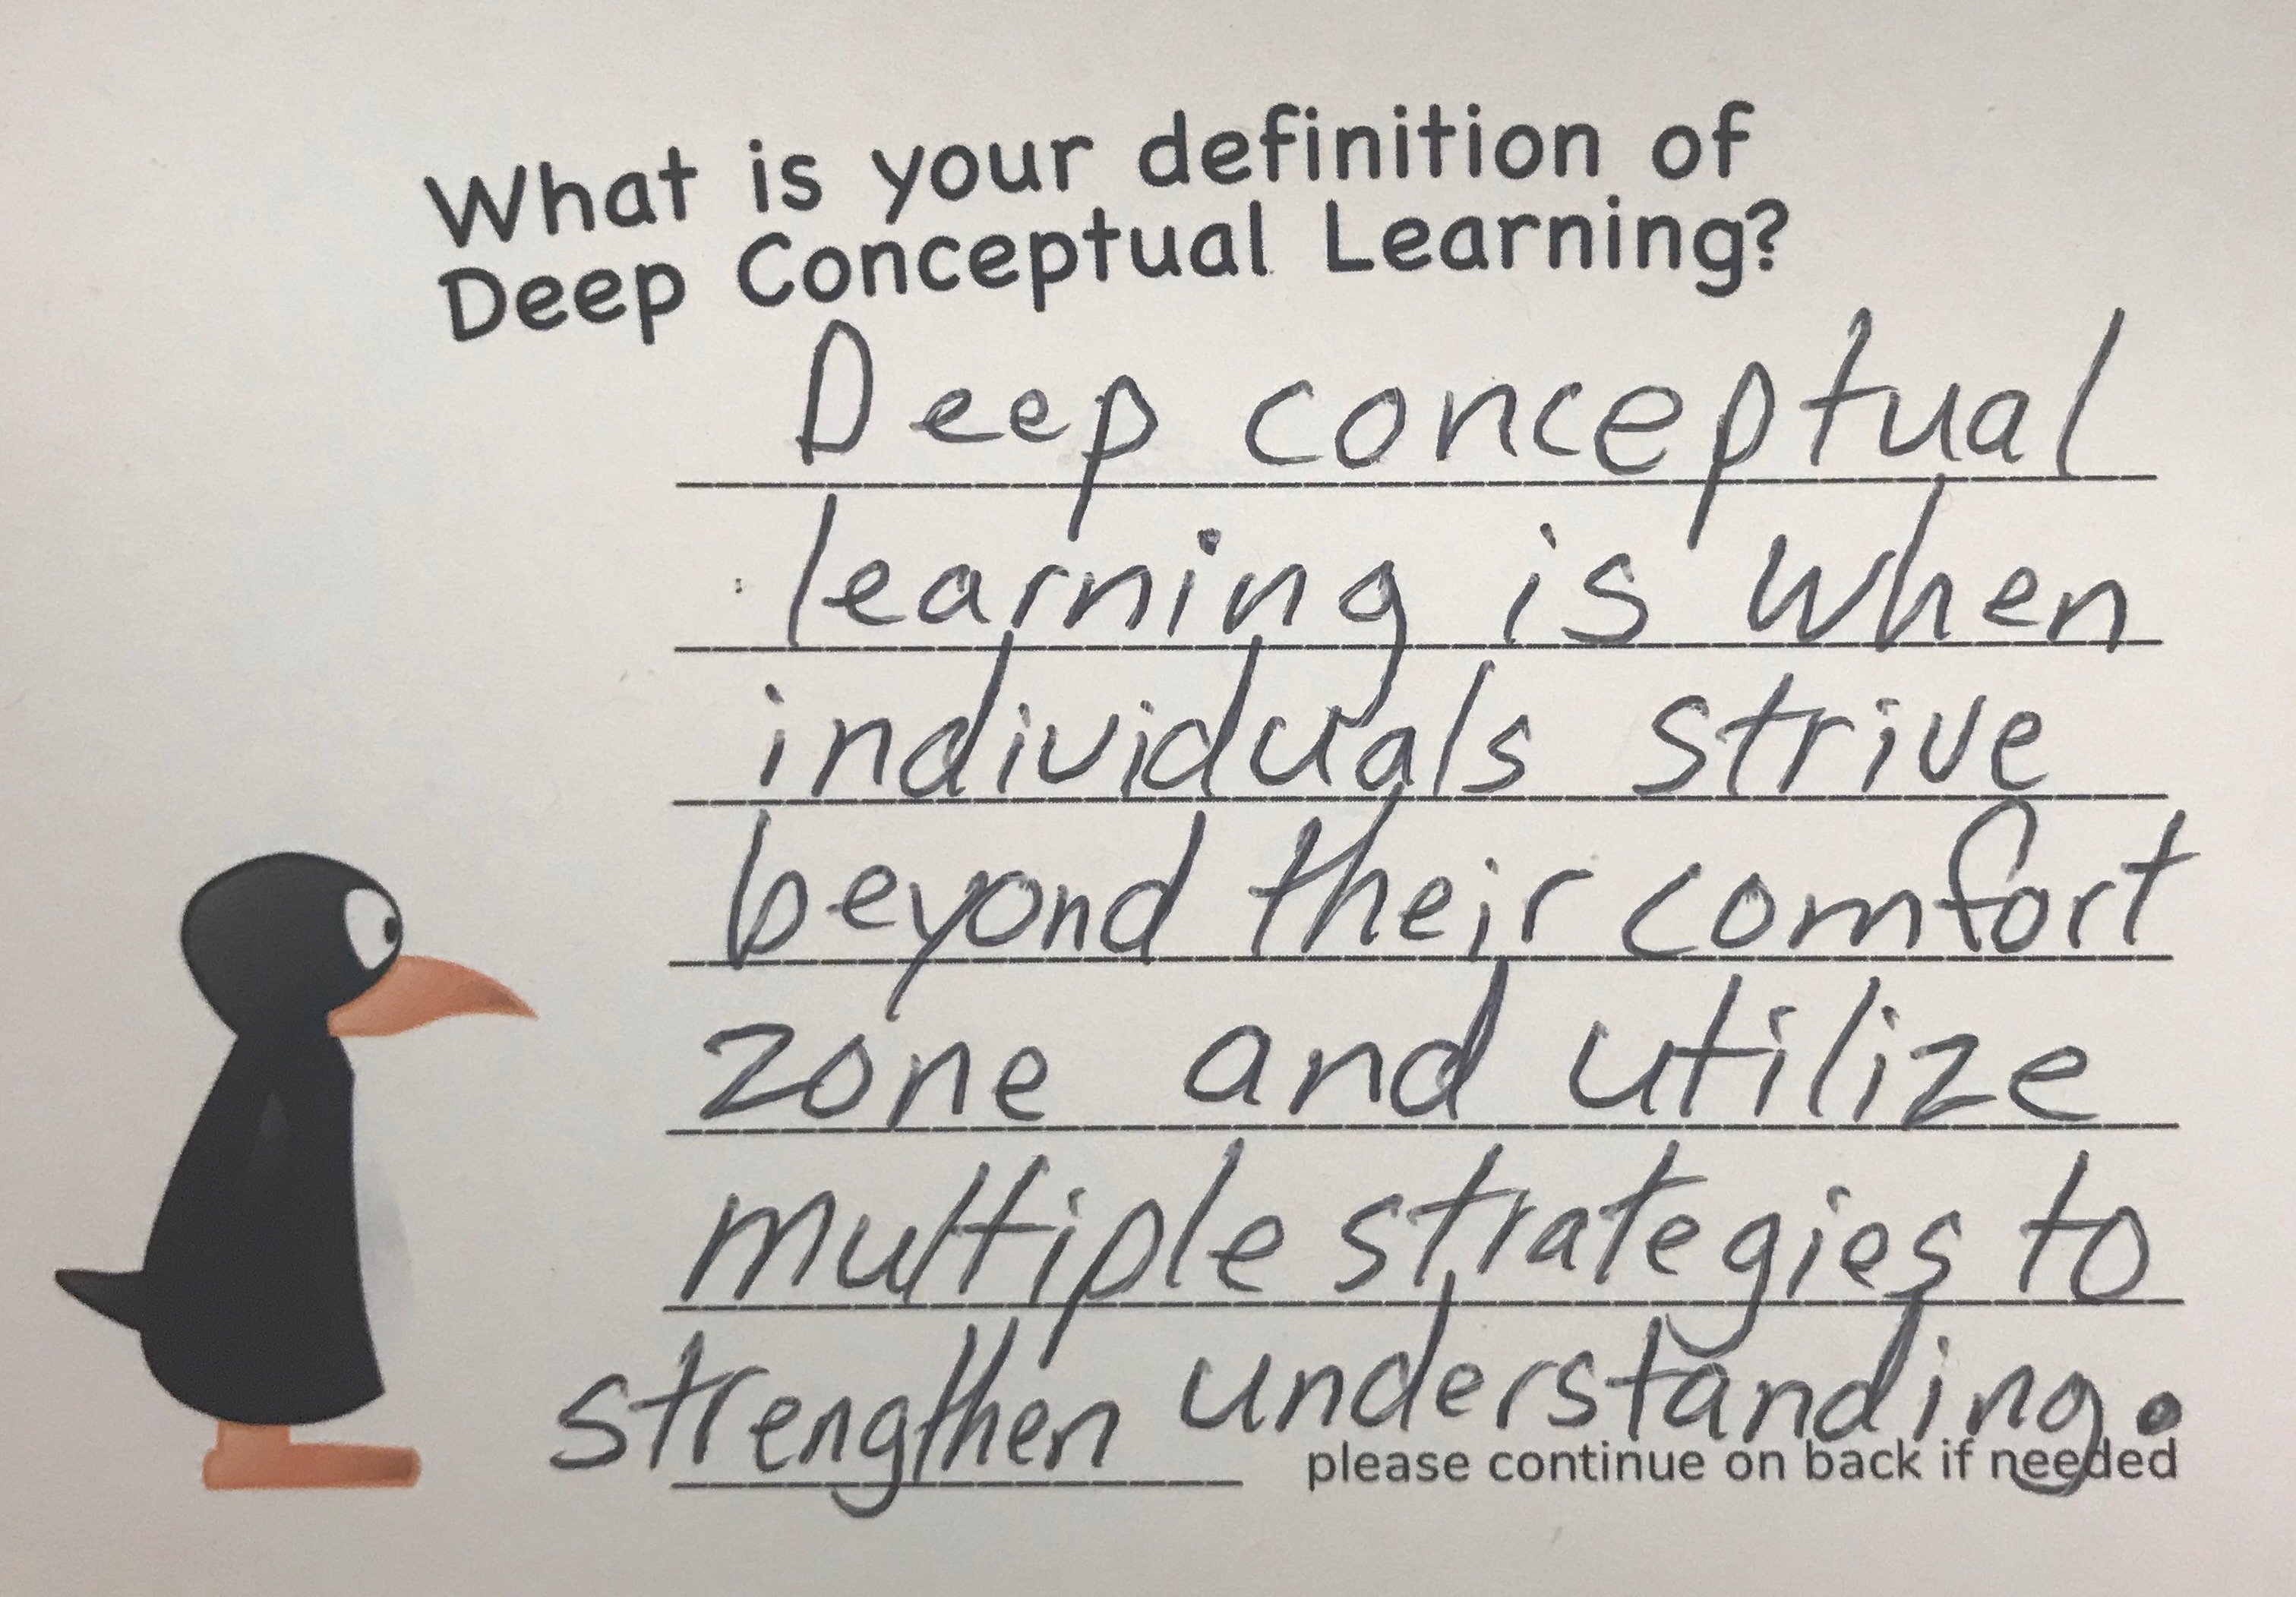 What is your definition of
Deep Conceptual Learning?
Deep conceptual
learning is when
individuals strive
beyond their comfort
zone and utilize
multiple strategies to
strengthen understanding.
please continue on back if needed